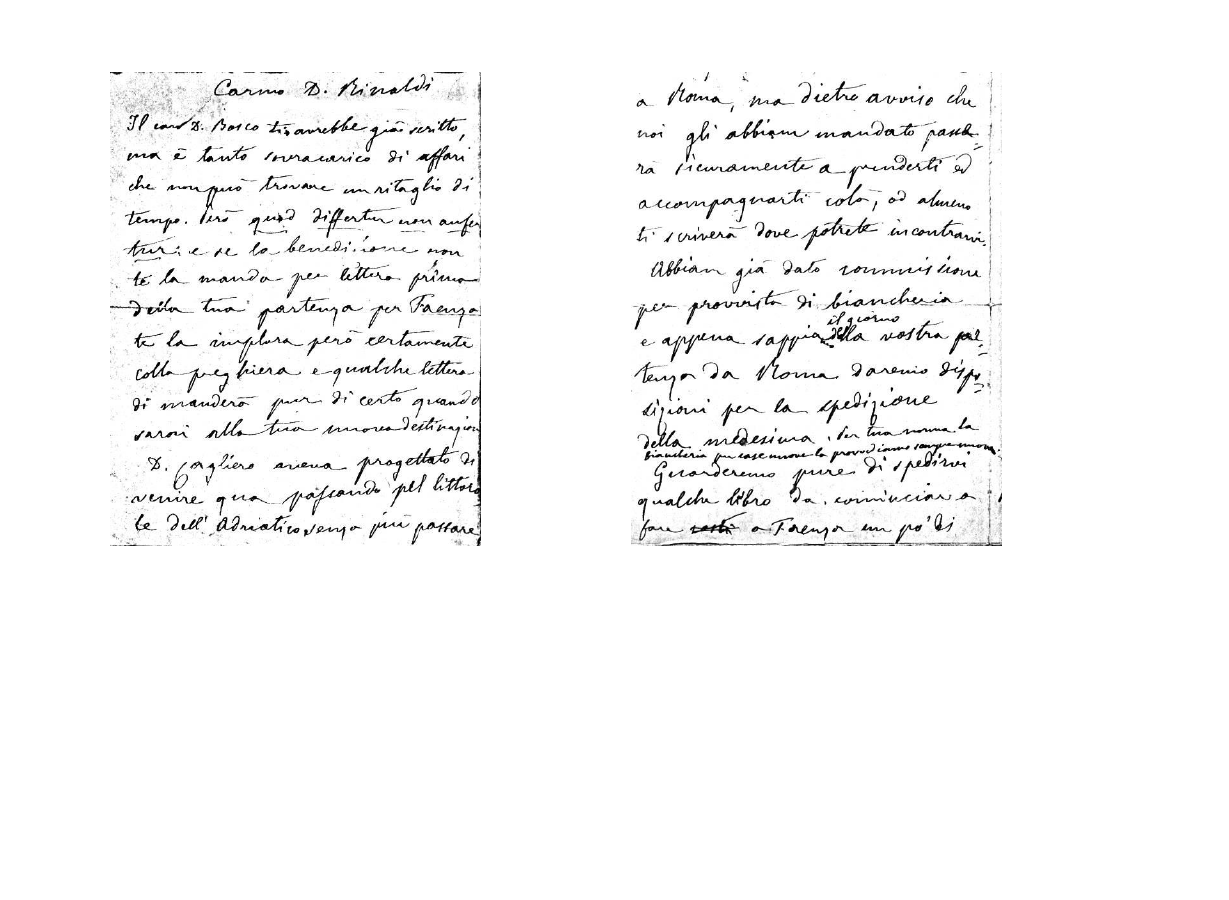 Carmo D. Rinaldi
Il caro D. Bosco ti avrebbe già scritto,
ma è tanto sovracarico di affari
che non può trovare un ritaglio di
tempo. Però quod differtur non aufer
tur: e se la benedizione non
te la manda per lettera prima
della tua partenza per Faenza
te la implora però certamente
colla preghiera e qualche lettera
di manderà pur di certo quando
sarai alla tua nuova destinazion
D. Cagliero aveva progettato di
venire qua passando pel littora
le dell' Adriatico senza più passare
a Roma, ma dietro avviso che
noi gli abbiam mandato passe-
rà sicuramente a prenderti ed
accompagnarti colà, od almeno
ti scriverà dove potrete incontrarvi.
Abbiam già dato commissione
per provvista di biancheria
il giorno
e appena sappia della vostra par-
tenza da Roma daremo dispo-
sizioni per la spedizione
della medesima. Per tua norma la
biancheria per case nuove la provvediamo sempre nuova.
Guarderemo pure di spedirvi
qualche libro da cominciar a
fare a Faenza un po' di